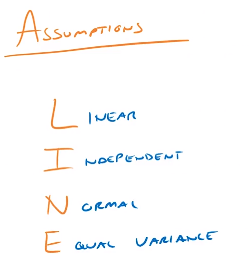 ASSUMPTIONS
LINEAR
INDEPENDENT
NORMAL
EQUAL VARIANCE